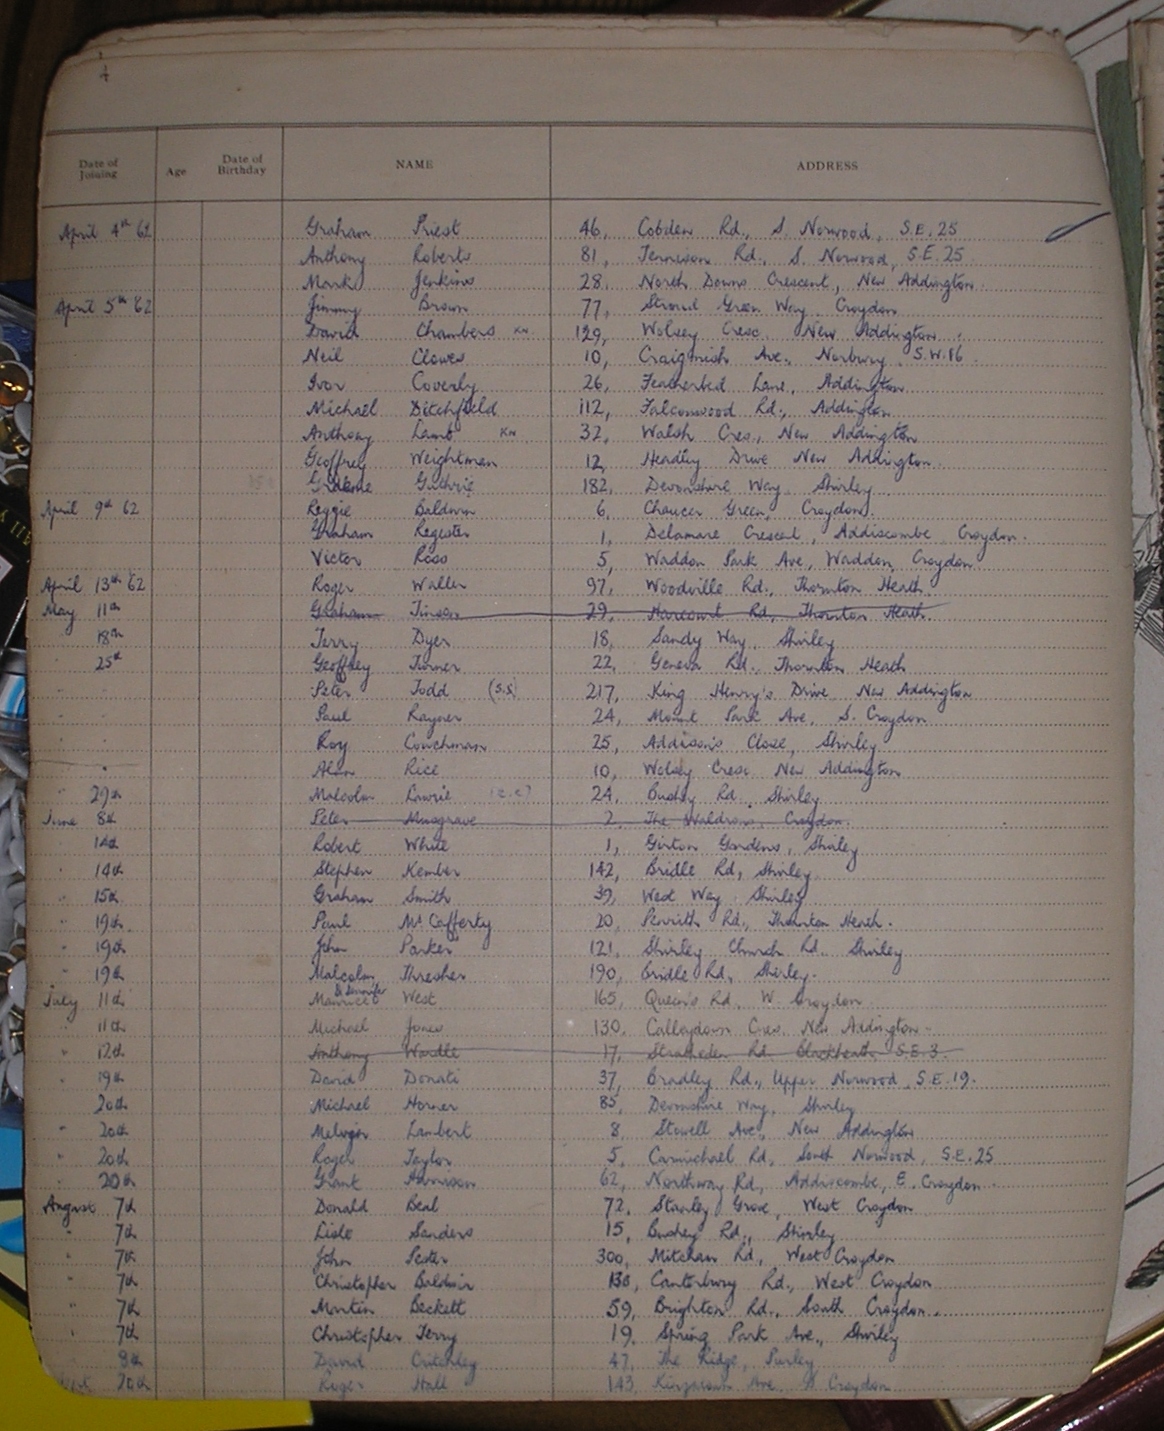 Date of Joining Age Date of Birthday NAME ADDRESS
April 4th 62 Graham Priest 46, Cobden Rd., S. Norwood, S.E.25
Anthony Roberts 81, Tennison Rd., S. Norwood, S.E.25
Mark Jenkins 28, North Downs Crescent, New Addington.
April 5th '62 Jimmy Brown 77, Stroud Green Way, Croydon
David Chambers KN. 129, Wolsey Cresc. New Addington.
Neil Clowes 10, Craignish Ave., Norbury S.W.16
Ivor Coverly 26, Featherbed Lane, Addington.
Michael Ditchfield 112, Falconwood Rd., Addington.
Anthony Lamb KN 32, Walsh Cres., New Addington
Geoffrey Weightman 12, Headley Drive New Addington.
Guthrie 182, Devonshire Way, Shirley
April 9th 62 Reggie Baldwin 6, Chaucer Green, Croydon.
Graham Register 1, Delamare Crescent, Addiscombe, Croydon.
Victor Ross 5, Waddon Park Ave., Waddon, Croydon
April 13th '62 Roger Waller 97, Woodville Rd., Thornton Heath.
May 11th Graham Tinson 29, Harcourt Rd, Thornton Heath.
18th Terry Dyer 18, Sandy Way, Shirley
25th Geoffrey Turner 22, Geneva Rd., Thornton Heath
" Peter Todd (S.S) 217, King Henry's Drive, New Addington
" Paul Rayner 24, Mount Park Ave, S. Croydon
" Roy Couchman 25, Addison's Close, Shirley
" Alan Rice 10, Wolsey Cresc. New Addington
" 29th Malcolm Lawrie 24, Bushey Rd, Shirley
June 8th Peter Musgrave 2, The Waldrons, Croydon.
14th Robert White 1, Girton Gardens, Shirley
" 14th Stephen Kember 142, Bridle Rd, Shirley
" 15th Graham Smith 39, West Way, Shirley
" 19th Paul McCafferty 20, Penrith Rd., Thornton Heath.
" 19th John Parker 121, Shirley Church Rd. Shirley
" 19th Malcolm Thresher 190, Bridle Rd., Shirley.
July 11th Maurice & Jennifer West 165, Queen's Rd, W. Croydon
" 11th Michael Jones 130, Calleydown Cres. New Addington.
" 12th Anthony Wardle 17, Stratheden Rd. Blackheath S.E.3.
" 19th David Donati 37, Bradley Rd., Upper Norwood, S.E.19.
20th Michael Horner 85, Devonshire Way, Shirley
" 20th Lambert 8, Stowell Ave., New Addington
" 20th Roger Taylor 5, Carmichael Rd, South Norwood, S.E.25
" 20th Grant 62, Northway Rd, Addiscombe, E. Croydon.
August 7th Donald Beal 72, Stanley Grove, West Croydon
" 7th Lisle Sanders 15, Bushey Rd., Shirley
" 7th John 300, Mitcham Rd, West Croydon
" 7th Christopher Baldwin 130, Canterbury Rd., West Croydon
" 7th Martin Beckett 59, Brighton Rd., South Croydon.
" 7th Christopher Terry 19, Spring Park Ave., Shirley
8th David Critchley 47, The Ridge, Purley
20th Roger Hall 143, Ave, Croydon